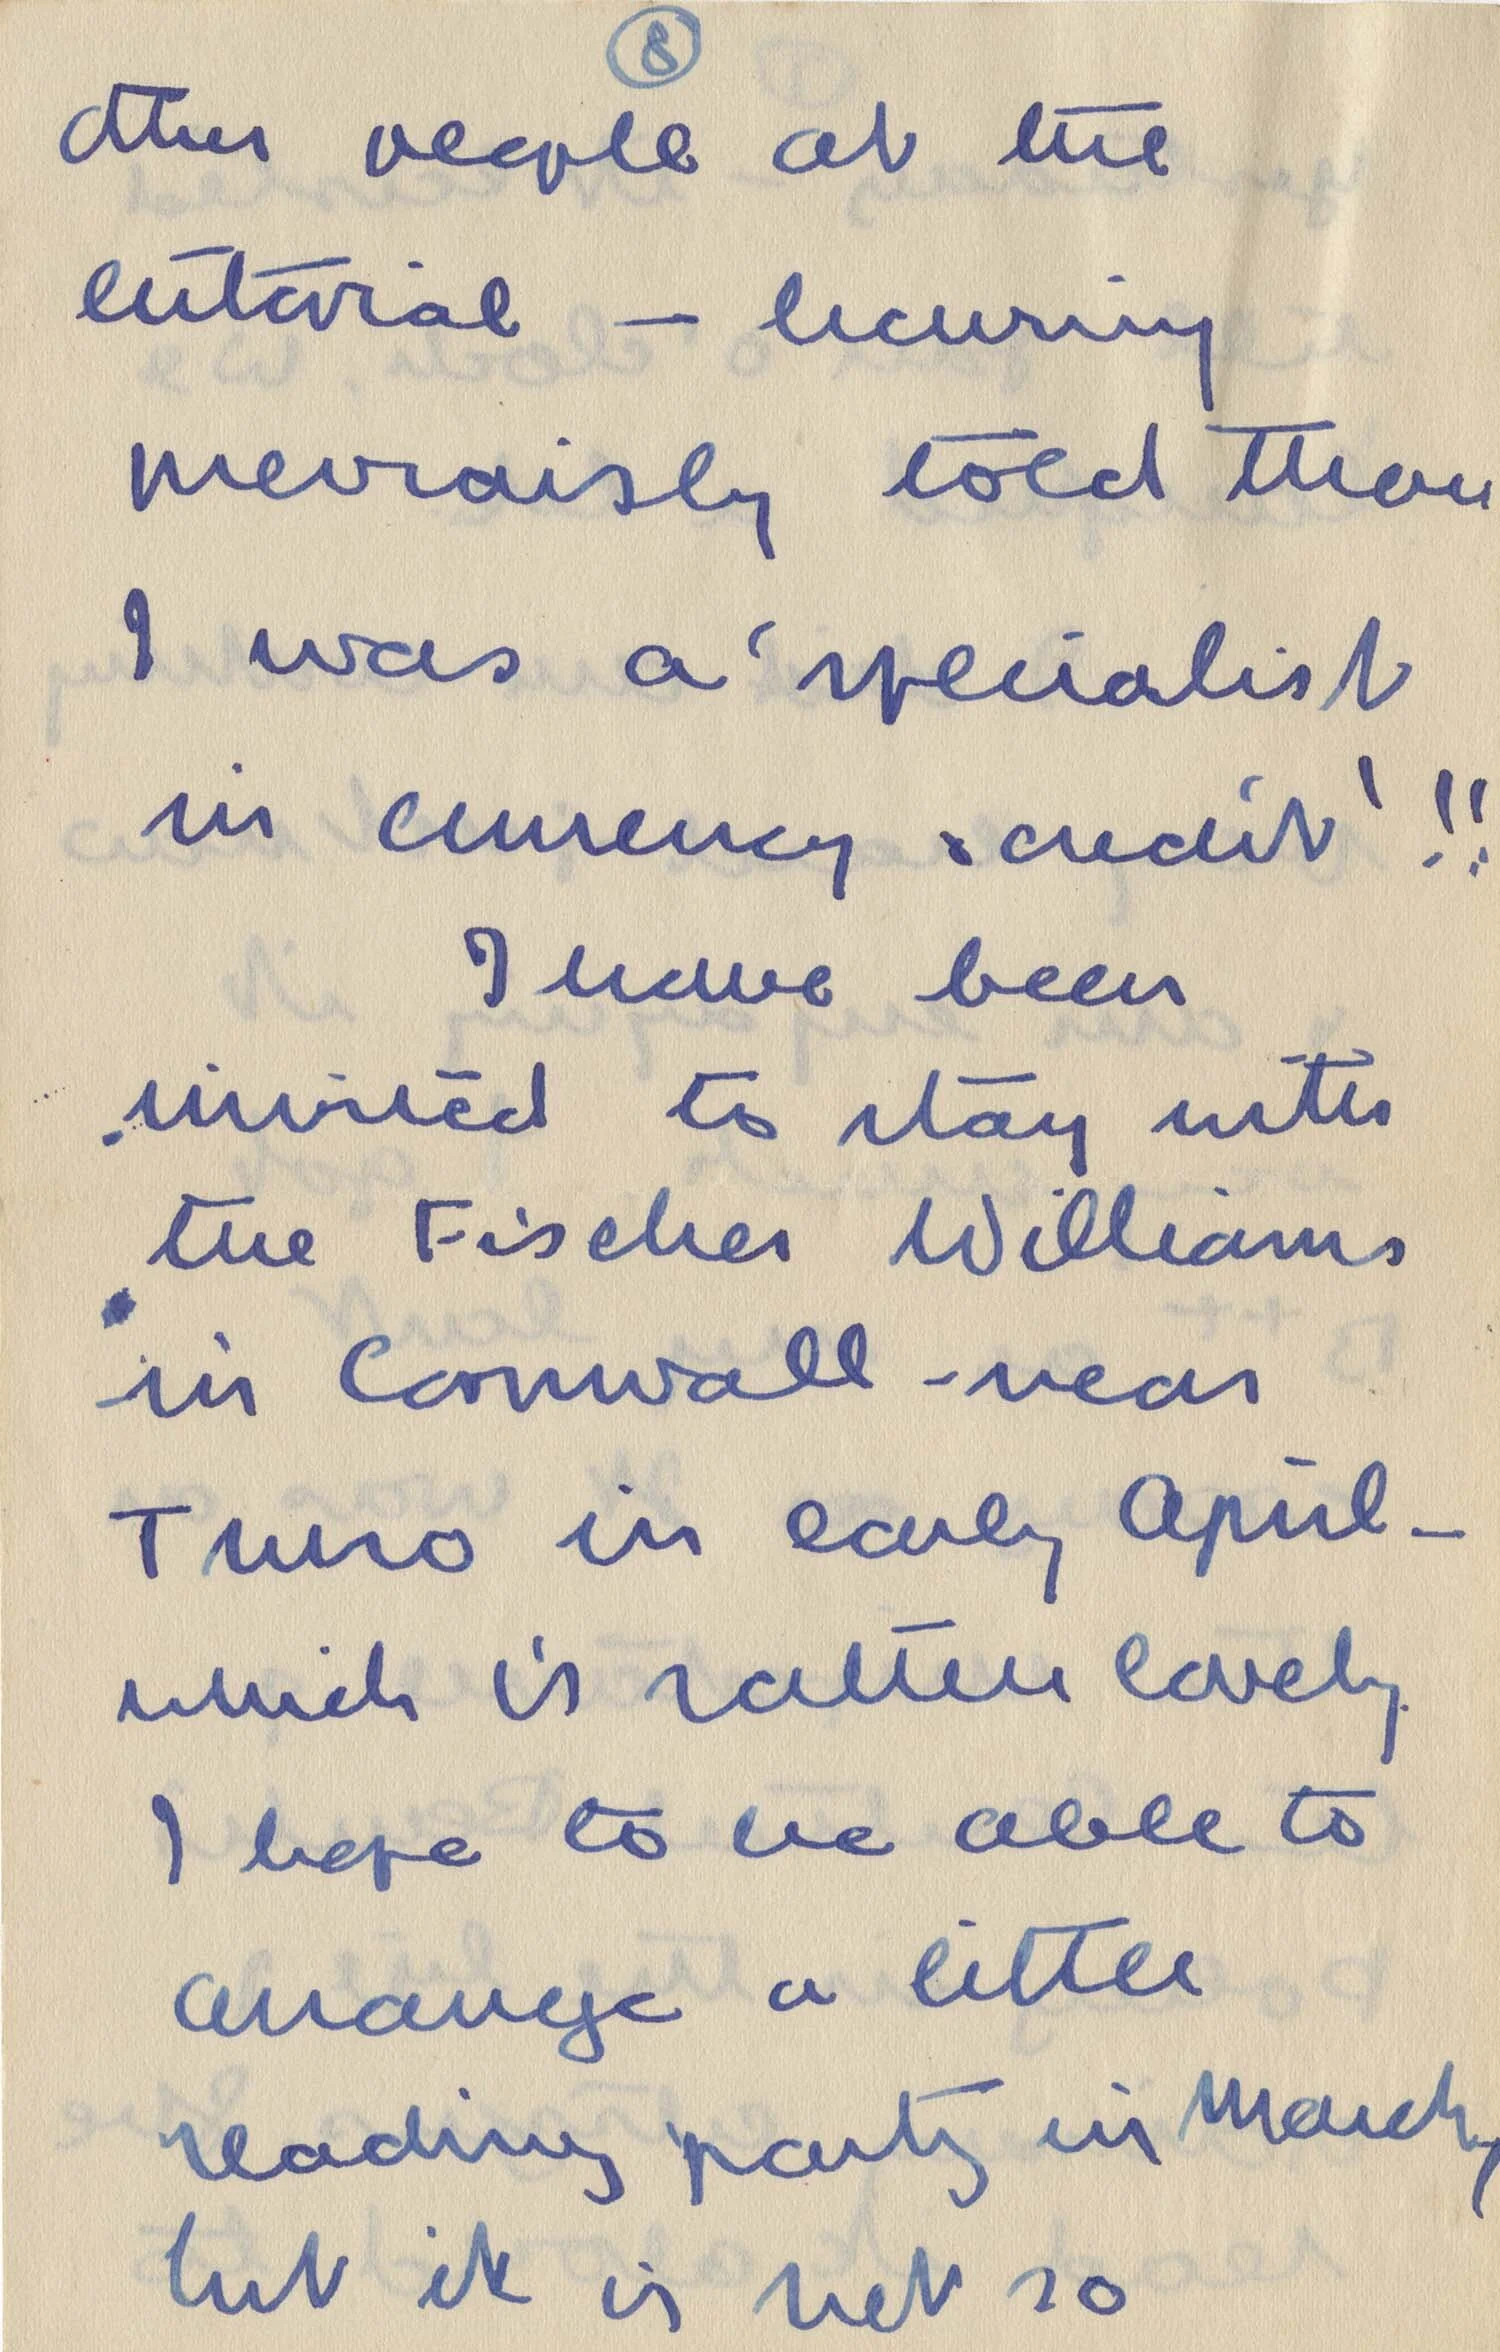 8
other people at the
tutorial – having
previously told them
I was a 'specialist
in currency & credit' !!
I have been
invited to stay with
the Fischer Williams
in Cornwall – near
Truro in early April –
which is rather lovely.
I hope to be able to
arrange a little
reading party in March,
but it is not so